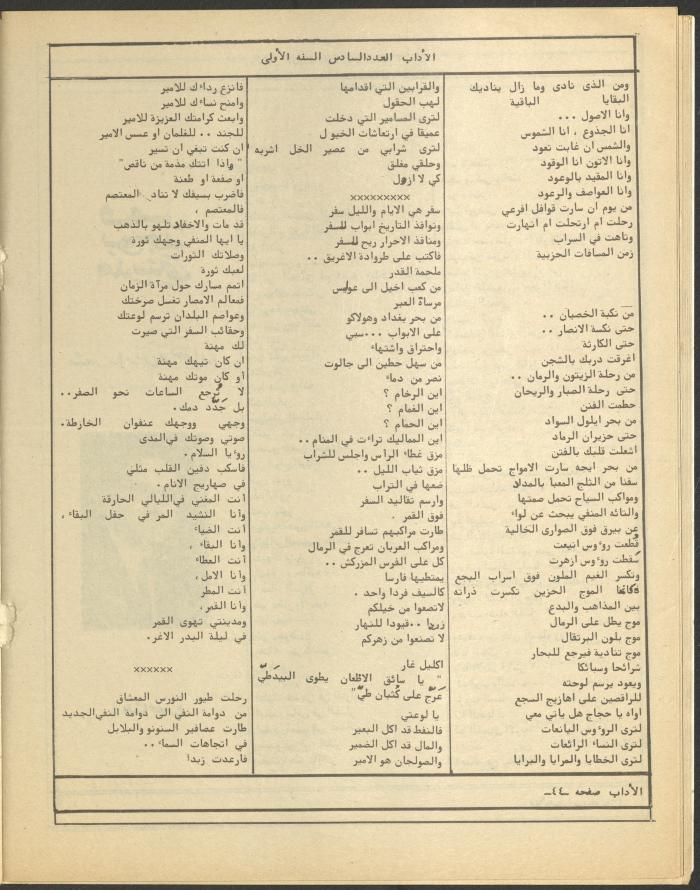 الآداب العدد السادس السنه الأولى
ومن الذى نادى وما زال يناديك
البقايا الباقية
وانا الاصول ...
انا الجذوع ، انا الشموس
والشمس ان غابت تعود
وانا الاتون انا الوقود
وانا المقيد بالوعود
وانا العواصف والرعود
من يوم ان سارت قوافل افرعي
رحلت ام ارتحلت ام انهارت
وتاهت في السراب
زمن المسافات الحزبية
من نكبة الخصيان ..
حتى نكسة الانصار ..
حتى الكارثة
اغرقت دربك بالشجن
من رحلة الزيتون والرمان ..
حتى رحلة الصبار والريحان
حطمت الفنن
من بحر ايلول السواد
حتى حزيران الرماد
اشعلت قلبك بالفتن
من بحر ايجه سارت الامواج تحمل ظلها
سفنا من الثلج المعبا بالمداد
ومواكب السياح تحمل صمتها
والتائه المنفي يبحث عن لواء
عن بيرق فوق الصوارى الخالية
قُطعت روءوس اتيعت
سَقطت روءوس ازهرت
وتكسر الغيم الملون فوق اسراب البجع
الموج الحزين تكسرت ذراته
بين المذاهب والبدع
موج يطل على الرمال
موج بلون البرتقال
موج تنادية فيرجع للبحار
شراثحا وسبائكا
ويعود يرسم لوحته
للراقصين على اهازيج السجع
اواه يا حجاج هل ياتي معي
لترى الروءوس اليانعات
لترى النساء الرائعات
لترى الخطايا والمرايا والبرايا
والقرابين التي اقدامها
لهب الحقول
لترى المسامير التي دخلت
عميقا في ارتعاشات الخيول
لترى شرابي من عصير الخل اشربه
وحلقي مغلق
كي لا ازول
×××××××××
سفر هي الايام والليل سفر
ونوافذ التاريخ ابواب للسفر
ومنافذ الاحرار ريح للسفر
فاكتب على طروادة الاغريق ..
ملحمة القدر
من كعب اخيل الى عوليس
مرساة العبر
من بحر بغداد وهولاكو
على الابواب ...سبي
واحتراق واشتهاء
من سهل حطين الى جالوت
نصر من دماء
اين الرخام ؟
اين الغمام ؟
اين الحمام ؟
اين المماليك تراءت في المنام ..
مزق غطاء الرأس واجلس للشراب
مزق ثياب الليل ..
ضعها في التراب
وارسم تقاليد السفر
فوق القمر .
طارت مراكبهم تسافر للقمر
ومراكب العربان تعرج في الرمال
كل على الفرس المزركش ..
يمتطيها فارسا
كالسيف فردا واحد .
لاتصعوا من خيلكم
..قيودا للنهار
لا تصنعوا من زهركم
اكليل غار
" يا سائق الاظعان يطوى البيدَطيّ
عَرّج على كُثبان طيّ"
يا لوعتي
فالنفط قد اكل البعير
والمال قد اكل الضمير
والصولجان هو الامير
فانزع رداءك للامير
وامنح نساءك للامير
وابعث كرامتك العزيزة للامير
للجند .. للغلمان او عسس الامير
ان كنت تبغي ان تسير
" واذا اتتك مذمة من ناقص"
او صفعة او طعنة
فاضرب بسيفك لا تناد المعتصم
فالمعتصم ،
قد مات والاحفاد تلهو بالذهب
يا ايها المنفي وجهك ثورة
وصلاتك الثورات
لعبك ثورة
اتمم مسارك حول مرآة الزمان
فمعالم الامصار تغسل صرختك
وعواصم البلدان ترسم لوعتك
وحقائب السفر التي صيرت
لك مهنة
ان كان تيهك مهنة
أو كان موتك مهنة
لا تُرجع الساعات نحو الصفر..
بل جَدّد دمك.
وجهي ووجهك عنفوان الخارطة.
صوتي وصوتك في المدى
روءيا السلام.
فاسكب دفين القلب مثلي
في صهاريج الانام .
أنت المغني في الليالي الحارقة
وأنا النشيد المر في حفل البقاء ،
أنت الضياء
وأنا البقاء ،
أنت العطاء
وأنا الامل،
أنت المطر
وأنا القمر،
ومدينتي تهوى القمر
في ليلة البدر الاغر.
××××××
رحلت طيور النورس المعشاق
من دوامة النفي الى دوامة النفي الجديد
طارت عصافير السنونو والبلابل
في اتجاهات السماء..
فارعدت زبدا
الآداب صفحه -٤٤-